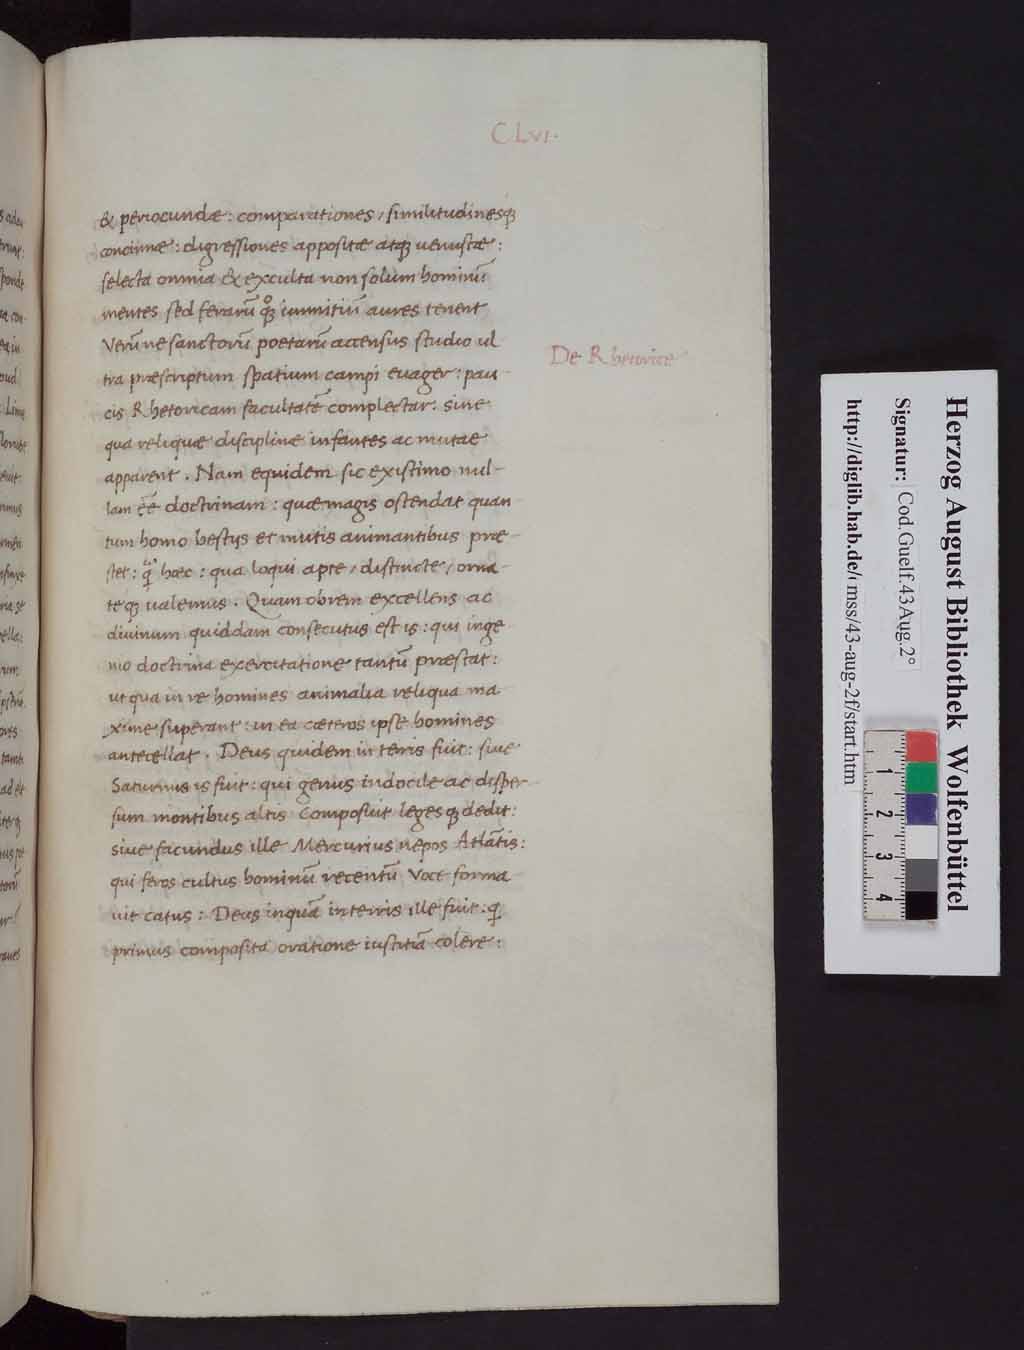 C Lvi.
& periocundæ: comparationes / similitudinesqꝫ
concinnæ: digressiones appositæ atqꝫ uenustæ:
selecta omnia & exculta non solum hominū
mentes sed ferarū qͦꝫ immitiū aures tenent
Verū ne sanctorū poetarū accensus studio ul
tra præscriptum spatium campi euager: pau-
cis Rhetoricam facultatē complectar: sine
qua reliquæ disciplinæ infantes ac mutae
apparent. Nam equidem sic existimo nul-
lam eē̄ doctrinam: quæ magis ostendat quan
tum homo bestijs et mutis animantibus præ-
stet: q̄ hæc: qua loqui apte / distincte / orna-
teqꝫ ualemus. Quamobrem excellens ac
diuinum quiddam consecutus est is: qui inge
nio doctrina exercitatione tantū præstat:
ut qua in re homines animalia reliqua ma
xime superant: in ea cæteros ipse homines
antecellat. Deus quidem in terris fuit: siue
Saturnus is fuit: qui genus indocile ac disper-
sum montibus altis Composuit legesqꝫ dedit:
siue facundus ille Mercurius nepos Atlātis:
qui feros cultus hominū recentū Voce forma
uit catus: Deus inquā in terris ille fuit: q
primus composita oratione iustitiā colere:
De Rhetorice
Herzog August Bibliothek Wolfenbüttel
Signatur: Cod.Guelf.43 Aug.2°
http://diglib.hab.de/ mss/43-aug-2f/start.htm
1 2 3 4